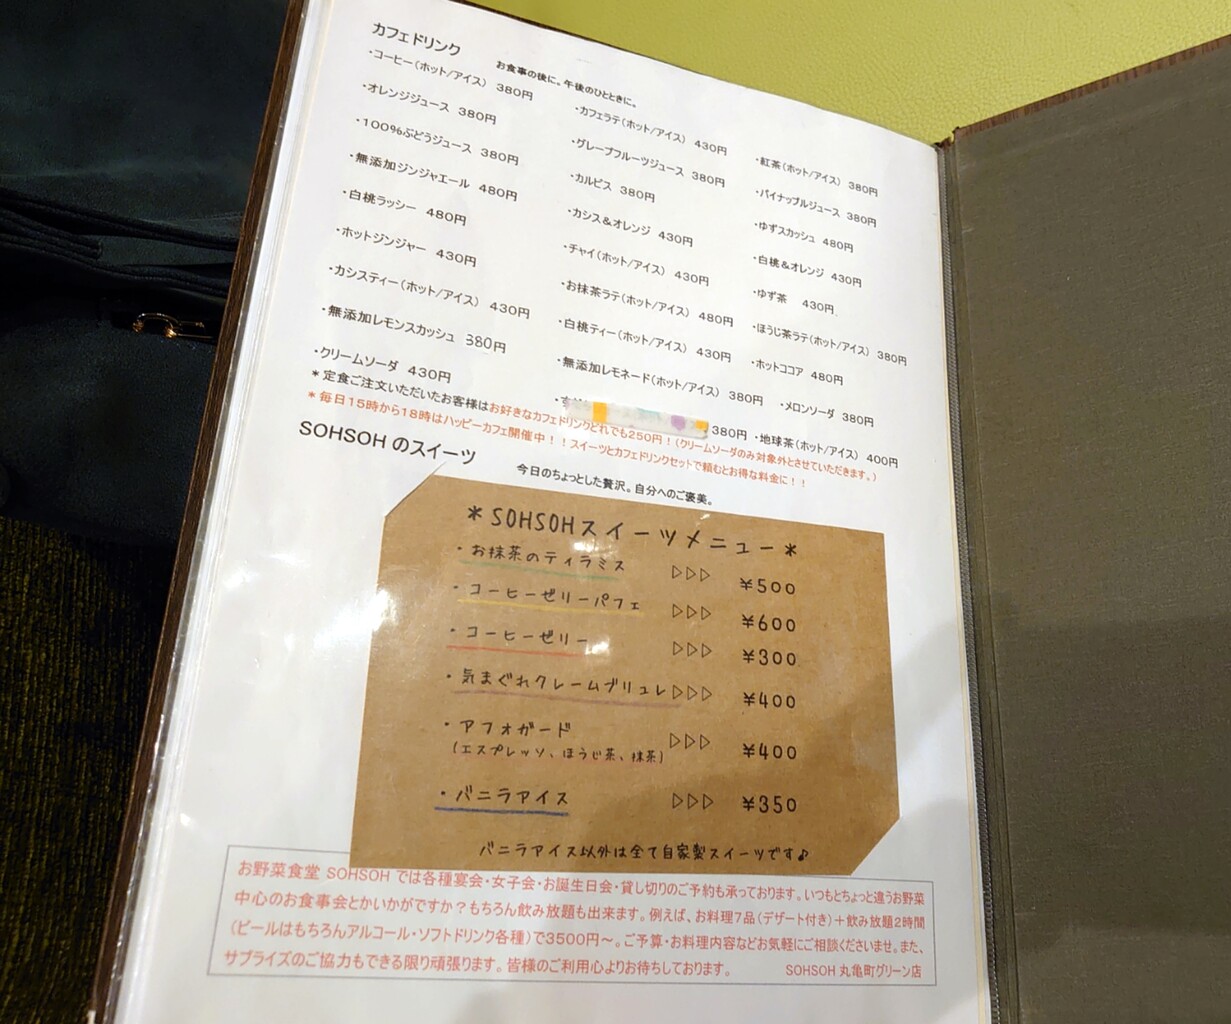 カフェドリンク
お食事の後に。午後のひとときに。
・コーヒー(ホット/アイス) 380円
・カフェラテ(ホット/アイス) 430円
・紅茶(ホット/アイス) 380円
・オレンジジュース 380円
・グレープフルーツジュース 380円
・パイナップルジュース 380円
・100%ぶどうジュース 380円
・カルピス 380円
・ゆずスカッシュ 480円
・無添加ジンジャエール 480円
・カシス&オレンジ 430円
・白桃&オレンジ 430円
・白桃ラッシー 480円
・チャイ(ホット/アイス) 430円
・ゆず茶 430円
・ホットジンジャー 430円
・お抹茶ラテ(ホット/アイス) 480円
・ほうじ茶ラテ(ホット/アイス) 380円
・カシスティー(ホット/アイス) 430円
・白桃ティー(ホット/アイス) 430円
・ホットココア 480円
・無添加レモンスカッシュ 380円
・無添加レモネード(ホット/アイス) 380円
・メロンソーダ 380円
・クリームソーダ 430円
380円
・地球茶(ホット/アイス) 400円
*定食ご注文いただいたお客様はお好きなカフェドリンクどれでも250円!(クリームソーダのみ対象外とさせていただきます。)
*毎日15時から18時はハッピーカフェ開催中!!スイーツとカフェドリンクセットで頼むとお得な料金に!!
SOHSOH のスイーツ
今日のちょっとした贅沢。自分へのご褒美。
*SOHSOHスイーツメニュー*
・お抹茶のティラミス ▷▷▷ ¥500
・コーヒーゼリーパフェ ▷▷▷ ¥600
・コーヒーゼリー ▷▷▷ ¥300
・気まぐれクレームブリュレ ▷▷▷ ¥400
・アフォガード ▷▷▷ ¥400
(エスプレッソ、ほうじ茶、抹茶)
・バニラアイス ▷▷▷ ¥350
バニラアイス以外は全て自家製スイーツです♪
お野菜食堂 SOHSOH では各種宴会・女子会・お誕生日会・貸し切りのご予約も承っております。いつもとちょっと違うお野菜
中心のお食事会とかいかがですか?もちろん飲み放題も出来ます。例えば、お料理7品(デザート付き)+飲み放題2時間
(ビールはもちろんアルコール・ソフトドリンク各種)で3500円~。ご予算・お料理内容などお気軽にご相談くださいませ。また、
サプライズのご協力もできる限り頑張ります。皆様のご利用心よりお待ちしております。 SOHSOH 丸亀町グリーン店